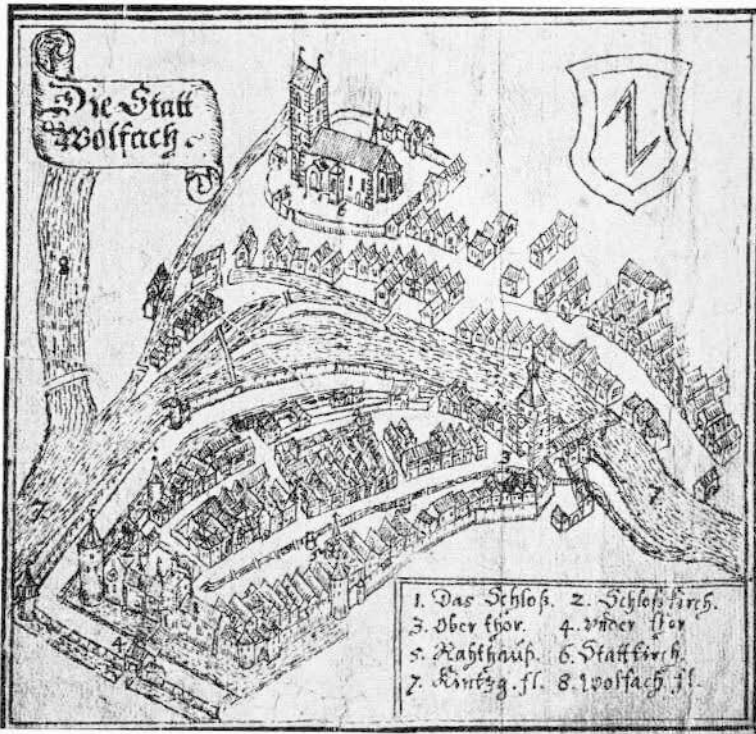 Die Statt
Wolfach.
6
8
3
7
7
2
5
4
1. Das Schloß. 2. Schloßkirch.
3. Ober thor. 4. Vnder thor
5. Rahthauß. 6. Stattkirch.
7. Kintzg. fl. 8. Wolfach fl.